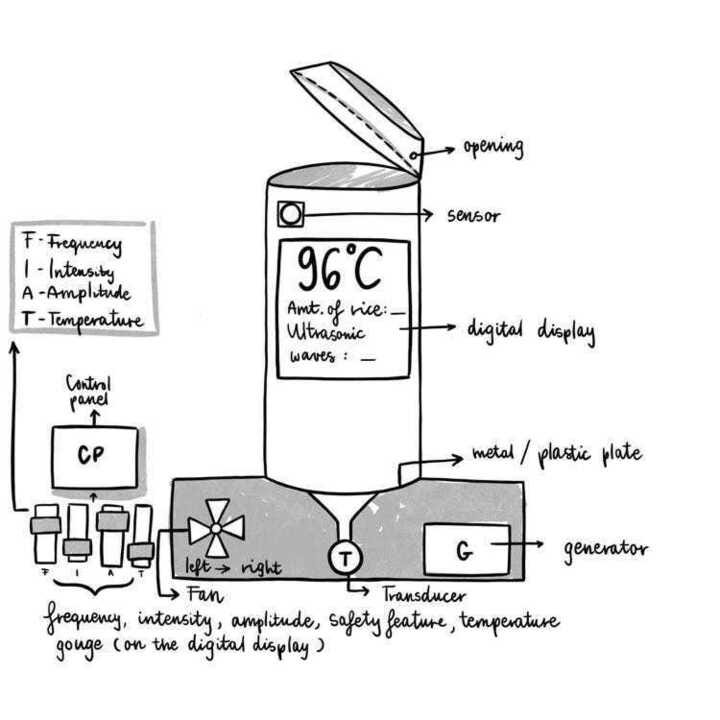 opening
sensor
96°C
Amt. of rice: __
Ultrasonic
waves : __
digital display
F - Frequency
I - Intensity
A - Amplitude
T - Temperature
Control
panel
CP
metal / plastic plate
F I A T
left → right
T
G
generator
Fan
Transducer
frequency, intensity, amplitude, safety feature, temperature
gouge (on the digital display)